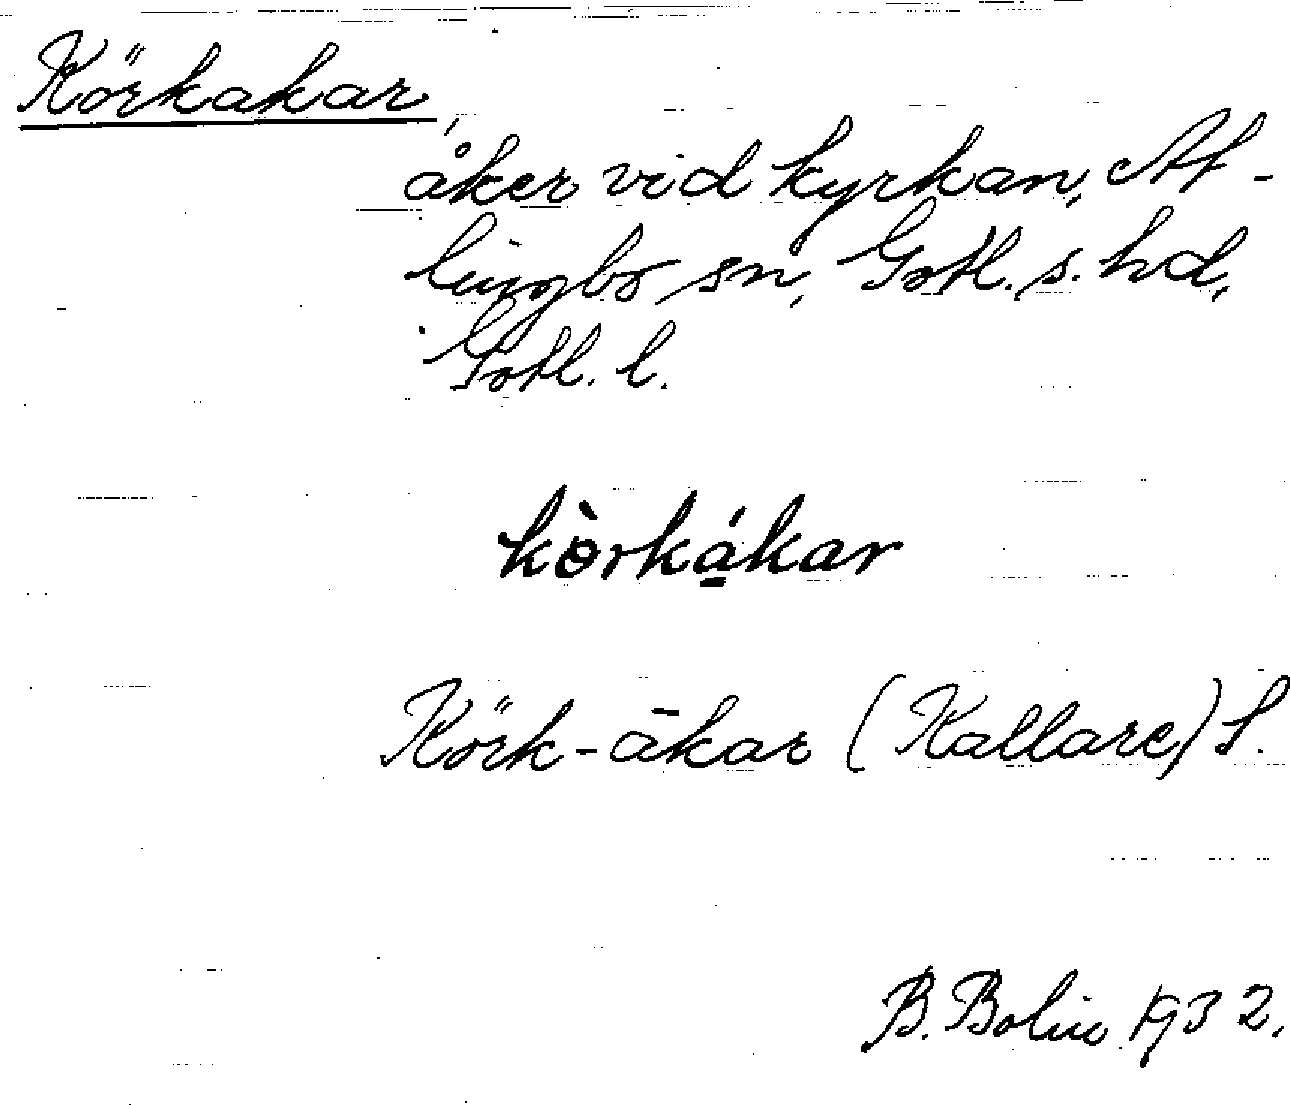 Körkakar,
åker vid kyrkan, At-
lingbo sn, Gotl. s. hd,
Gotl. l.
kòrká̱kar
Körk-ākar (Kallare) S.
B. Bolin 1932.